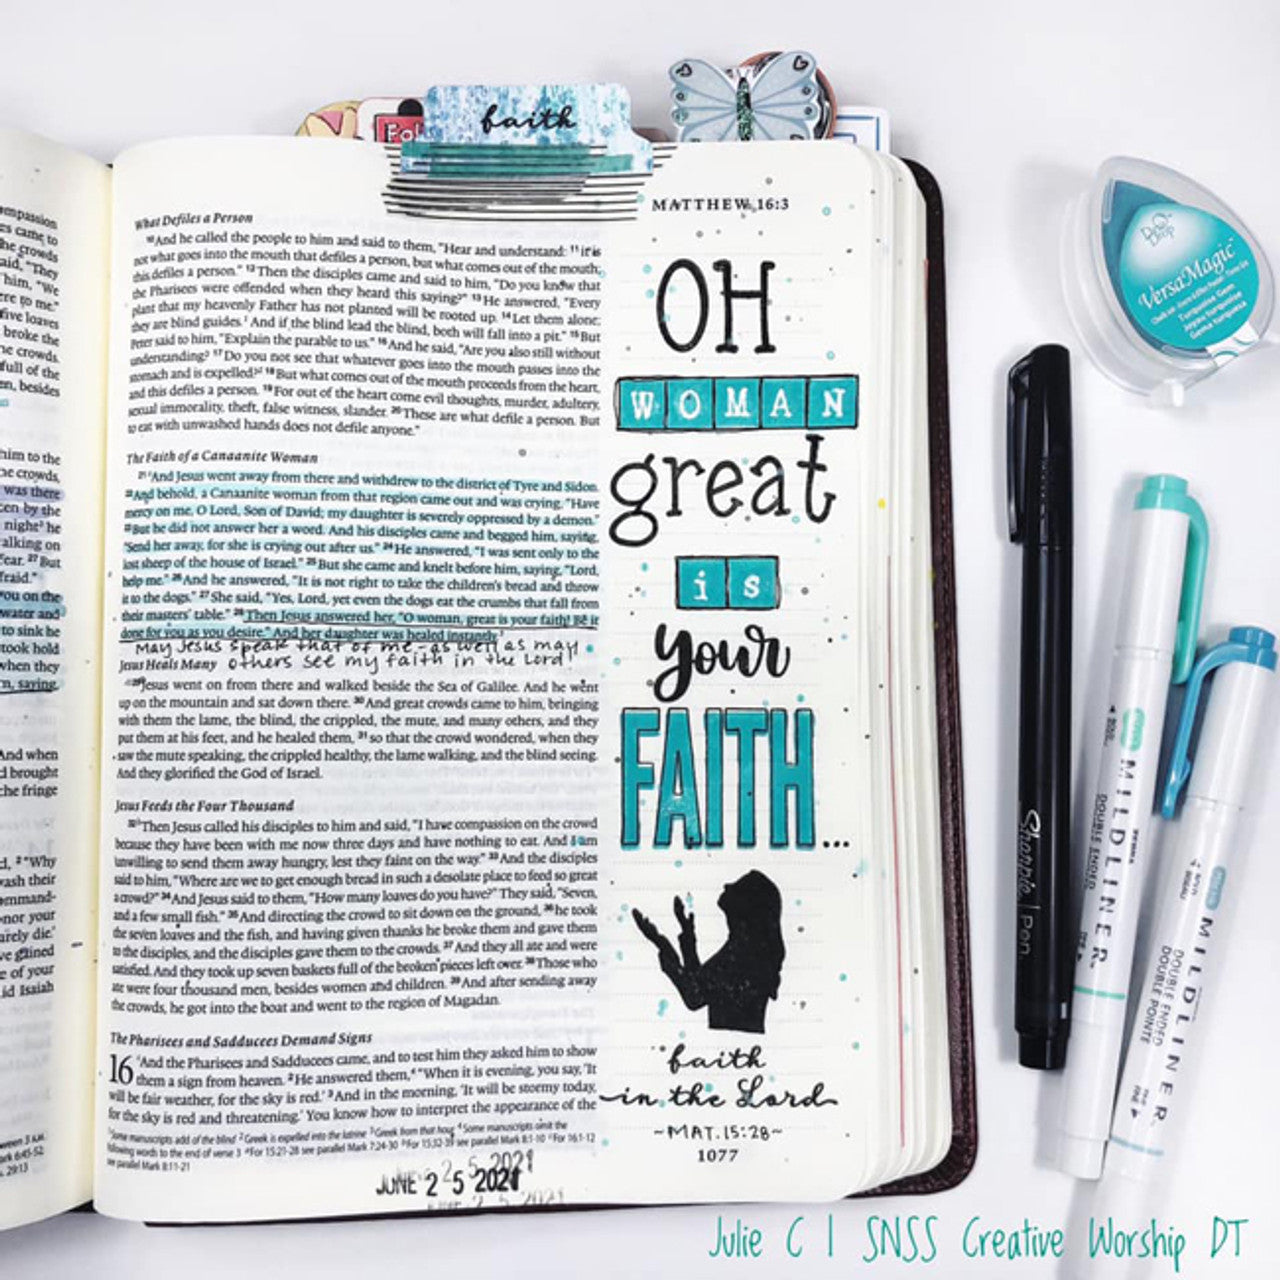 faith
Fol
MATTHEW 16:3
What Defiles a Person
10 And he called the people to him and said to them, "Hear and understand: 11 it is
not what goes into the mouth that defiles a person, but what comes out of the mouth;
this defiles a person." 12 Then the disciples came and said to him, "Do you know that
the Pharisees were offended when they heard this saying?" 13 He answered, "Every
plant that my heavenly Father has not planted will be rooted up. 14 Let them alone;
they are blind guides. And if the blind lead the blind, both will fall into a pit." 15 But
Peter said to him, "Explain the parable to us." 16 And he said, "Are you also still without
understanding? 17 Do you not see that whatever goes into the mouth passes into the
stomach and is expelled? 18 But what comes out of the mouth proceeds from the heart,
and this defiles a person. 19 For out of the heart come evil thoughts, murder, adultery,
sexual immorality, theft, false witness, slander. 20 These are what defile a person. But
to eat with unwashed hands does not defile anyone."
The Faith of a Canaanite Woman
21 And Jesus went away from there and withdrew to the district of Tyre and Sidon.
22 And behold, a Canaanite woman from that region came out and was crying, "Have
mercy on me, O Lord, Son of David; my daughter is severely oppressed by a demon."
23 But he did not answer her a word. And his disciples came and begged him, saying,
"Send her away, for she is crying out after us." 24 He answered, "I was sent only to the
lost sheep of the house of Israel." 25 But she came and knelt before him, saying, "Lord,
help me." 26 And he answered, "It is not right to take the children's bread and throw
it to the dogs." 27 She said, "Yes, Lord, yet even the dogs eat the crumbs that fall from
their masters' table." 28 Then Jesus answered her, "O woman, great is your faith! Be it
done for you as you desire." And her daughter was healed instantly.
May Jesus speak that of me - as well as may
others see my faith in the Lord
Jesus Heals Many
29 Jesus went on from there and walked beside the Sea of Galilee. And he went
up on the mountain and sat down there. 30 And great crowds came to him, bringing
with them the lame, the blind, the crippled, the mute, and many others, and they
put them at his feet, and he healed them, 31 so that the crowd wondered, when they
saw the mute speaking, the crippled healthy, the lame walking, and the blind seeing.
And they glorified the God of Israel.
Jesus Feeds the Four Thousand
32 Then Jesus called his disciples to him and said, "I have compassion on the crowd
because they have been with me now three days and have nothing to eat. And I am
unwilling to send them away hungry, lest they faint on the way." 33 And the disciples
said to him, "Where are we to get enough bread in such a desolate place to feed so great
a crowd?" 34 And Jesus said to them, "How many loaves do you have?" They said, "Seven,
and a few small fish." 35 And directing the crowd to sit down on the ground, 36 he took
the seven loaves and the fish, and having given thanks he broke them and gave them
to the disciples, and the disciples gave them to the crowds. 37 And they all ate and were
satisfied. And they took up seven baskets full of the broken pieces left over. 38 Those who
ate were four thousand men, besides women and children. 39 And after sending away
the crowds, he got into the boat and went to the region of Magadan.
The Pharisees and Sadducees Demand Signs
16 And the Pharisees and Sadducees came, and to test him they asked him to show
them a sign from heaven. 2 He answered them, "When it is evening, you say, 'It
will be fair weather, for the sky is red.' 3 And in the morning, 'It will be stormy today,
for the sky is red and threatening.' You know how to interpret the appearance of the
JUNE 25 2021
OH
WOMAN
great
is
your
FAITH...
faith
in the Lord
~MAT. 15:28~
1077
Dew Drop
VersaMagic
Turquoise Gem
Sharpie | Pen
MILDLINER
DOUBLE ENDED
MILDLINER
DOUBLE ENDED
DOUBLE POINTE
Julie C | SNSS Creative Worship DT